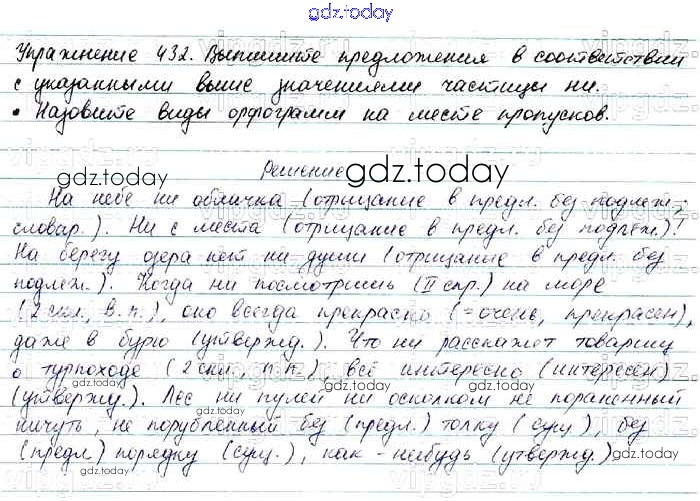 gdz.today
Упражнение 432. Выпишите предложения в соответствии
с указанными выше значениями частицы ни.
• Назовите виды орфограмм на месте пропусков.
Решение
gdz.today
На небе ни облачка (отрицание в предл. без подлеж.;
словар.). Ни с места (отрицание в предл. без подлеж.)!
На берегу озера нет ни души (отрицание в предл. без
подлеж.). Когда ни посмотришь (II спр.) на море
(2 скл., В.п.), оно всегда прекрасно (=очень, прекрасен),
даже в бурю (утвержд.). Что ни расскажет товарищ
о турпоходе (2 скл., П.п.), всё интересно (интересен)
(утвержд.). Лес ни пулей ни осколком не пораненный
ничуть, не порубленный без (предл.) толку (сущ.), без
(предл.) порядку (сущ.), как-нибудь (утвержд.)